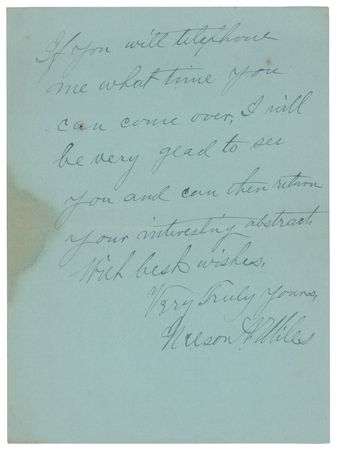 If you will telephone
me what time you
can come over, I will
be very glad to see
you and can then return
your interesting abstract.
With best wishes,
Very Truly yours,
Nelson A Miles